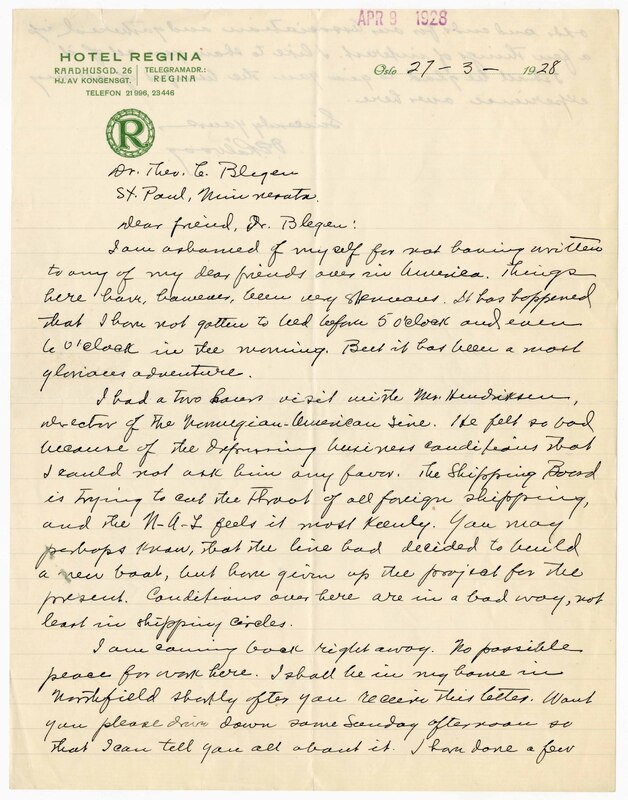 APR 9 1928
HOTEL REGINA
RAADHUSGD. 26 TELEGRAMADR.:
HJ. AV KONGENSGT. REGINA
TELEFON 21 996, 23 446
Oslo 27-3-1928
R
Dr. Theo. C. Blegen
St. Paul, Minnesota.
Dear friend, Dr. Blegen:
I am ashamed of myself for not having written
to any of my dear friends over in America. Things
here have, however, been very strenuous. It has happened
that I have not gotten to bed before 5 o'clock and even
6 o'clock in the morning. But it has been a most
glorious adventure.
I had a two hours visit with Mr. Hendriksen,
director of the Norwegian-American Line. He felt so bad
because of the depressing business conditions that
I could not ask him any favor. The Shipping Board
is trying to cut the throat of all foreign shipping,
and the N-A-L feels it most keenly. You may
perhaps know, that the line had decided to build
a new boat, but have given up the project for the
present. Conditions over here are in a bad way, not
least in shipping circles.
I am coming back right away. No possible
peace for work here. I shall be in my home in
Northfield shortly after you receive this letter. Wont
you please drive down some Sunday afternoon so
that I can tell you all about it. I have done a few